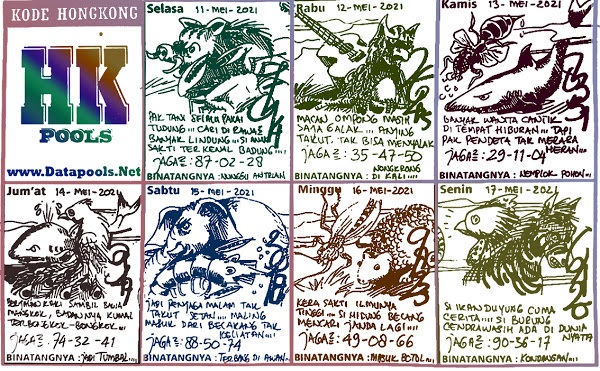 KODE HONGKONG
HK
POOLS
www.Datapools.Net
Selasa 11-MEI-2021
PAK TANI SELALU PAKAI
TUDUNG... CARI DI RAWA2
BANYAK LINDUNG... SI ANAK
SAKTI TERKENAL BADUNG....
JAGA2: 87-02-28
BINATANGNYA: NUNGGU ANTRIAN
Rabu 12-MEI-2021
MACAN OMPONG MASIH
SAMA GALAK... ANJING
TAKUT. TAK BISA MENYALAK
JAGA2: 35-47-50
BINATANGNYA: NONGKRONG
DI KALI....
Kamis 13-MEI-2021
BANYAK WANITA CANTIK
DI TEMPAT HIBURAN... TAPI
PAK PENDETA TAK MERASA
HERAN...
JAGA2: 29-11-04
BINATANGNYA: NEMPLOK POHON...
Jum'at 14-MEI-2021
BERJALAN KAKI SAMBIL BAWA
MANGKOK, BADANNYA KUMAL
TERBONGKOK-BONGKOK...
JAGA2: 74-32-41
BINATANGNYA: JADI TUMBAL...
Sabtu 15-MEI-2021
JADI PENJAGA MALAM TAK
TAKUT SETAN.... MALING
MASUK DARI BELAKANG TAK
KELIATAN...
JAGA2: 88-50-74
BINATANGNYA: TERBANG DI AWAN...
Minggu 16-MEI-2021
KERA SAKTI ILMUNYA
TINGGI... SI HIDUNG BELANG
MENCARI JANDA LAGI....
JAGA2: 49-08-66
BINATANGNYA: MASUK BOTOL...
Senin 17-MEI-2021
SI IKAN DUYUNG CUMA
CERITA.... SI BURUNG
CENDRAWASIH ADA DI DUNIA
NYATA
JAGA2: 90-36-17
BINATANGNYA: KONDANGAN...